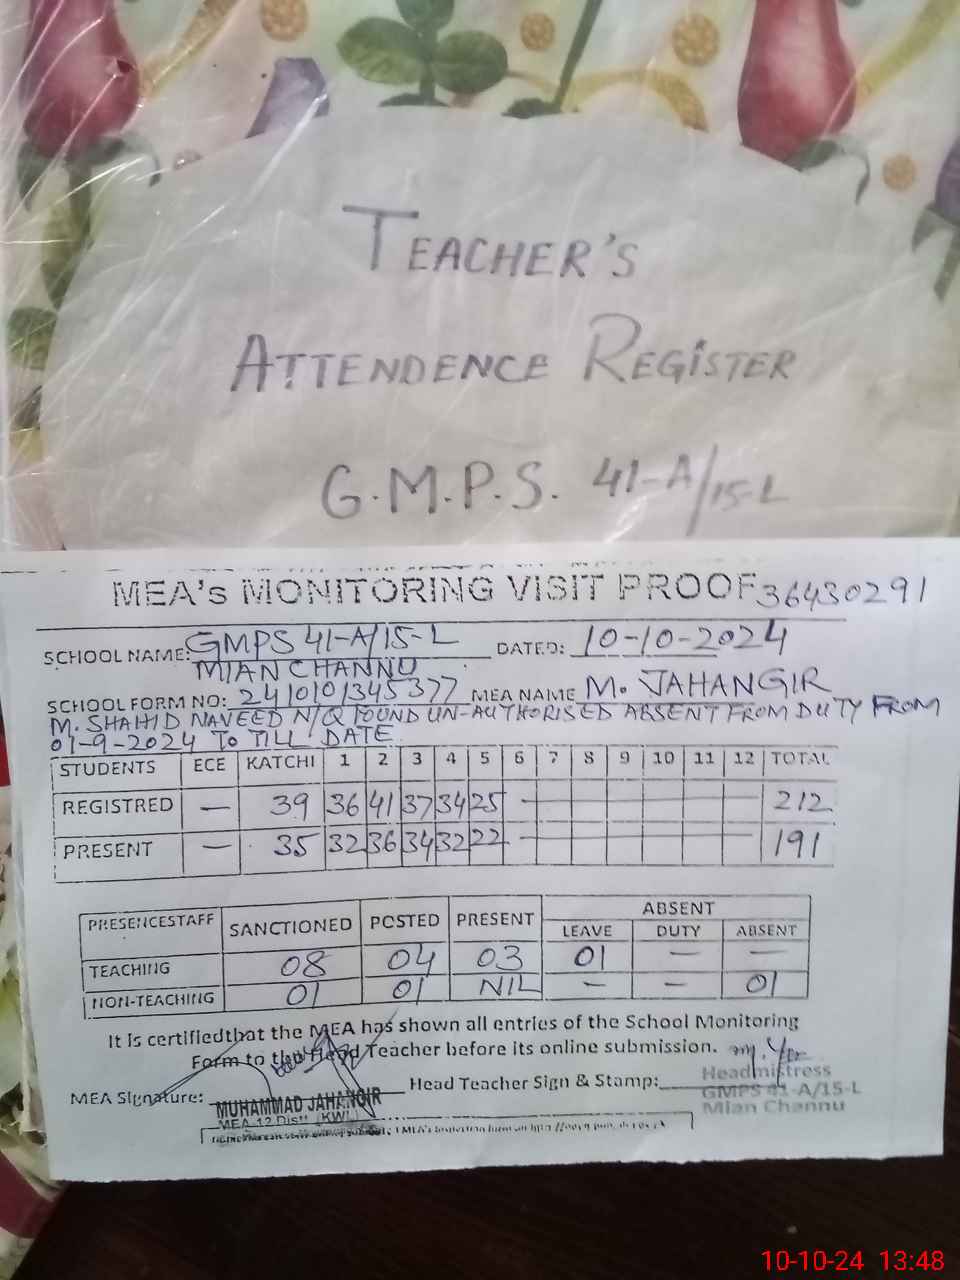 TEACHER'S
ATTENDENCE REGISTER
G.M.P.S. 41-A/15-L
MEA's MONITORING VISIT PROOF 36430291
SCHOOL NAME: GMPS 41-A/15-L DATED: 10-10-2024
MIAN CHANNU
SCHOOL FORM NO: 2410101345377 MEA NAME M. JAHANGIR
M. SHAHID NAVEED N/Q FOUND UN-AUTHORISED ABSENT FROM DUTY FROM
01-9-2024 TO TILL DATE
STUDENTS ECE KATCHI 1 2 3 4 5 6 7 8 9 10 11 12 TOTAL
REGISTRED — 39 36 41 37 34 25 — 212
PRESENT — 35 32 36 34 32 22 — 191
PRESENCESTAFF SANCTIONED POSTED PRESENT ABSENT
LEAVE DUTY ABSENT
TEACHING 08 04 03 01 — —
NON-TEACHING 01 01 NIL - - 01
It is certifiedthat the MEA has shown all entries of the School Monitoring
Form to the Head Teacher before its online submission.
MEA Signature: Head Teacher Sign & Stamp:
MUHAMMAD JAHANGIR
MEA 12 Distt (KWL)
Headmistress
GMPS 41-A/15-L
Mian Channu
10-10-24 13:48